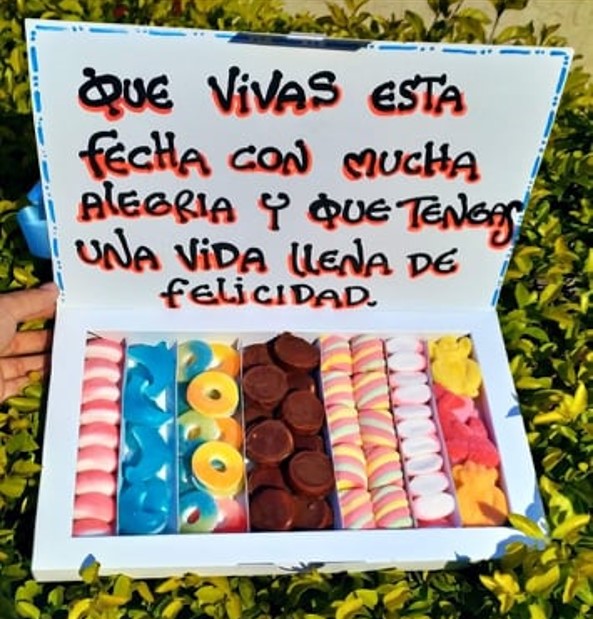 QUE VIVAS ESTA
FECHA CON MUCHA
ALEGRIA Y QUE TENGAS
UNA VIDA LLENA DE
FELICIDAD.